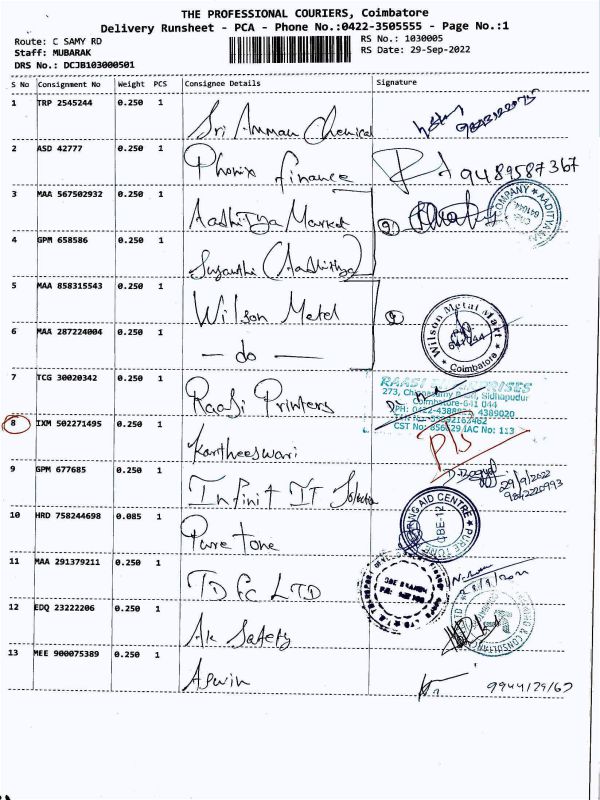 THE PROFESSIONAL COURIERS, Coimbatore
Delivery Runsheet - PCA - Phone No.:0422-3505555 - Page No.:1
Route: C SAMY RD
RS No.: 1030005
Staff: MUBARAK
RS Date: 29-Sep-2022
DRS No.: DCJB103000501
S No Consignment No Weight PCS Consignee Details Signature
1 TRP 2545244 0.250 1 Sri Amman Chemical
2 ASD 42777 0.250 1 Phonix Finance 9489587367
3 MAA 567502932 0.250 1 Aadhitya Market
4 GPM 658586 0.250 1 (Aadhithya)
5 MAA 858315543 0.250 1 Wilson Metal
Wilson Metal Mart
Coimbatore
6 MAA 287224004 0.250 1 — do —
7 TCG 30020342 0.250 1 Raasi Printers
273, Chinnasamy Road, Sidhapudur
Coimbatore-641 044
8 IXM 502271495 0.250 1 Kartheeswari
9 GPM 677685 0.250 1 Infinit IT Solution
29/9/2022
10 HRD 758244698 0.085 1 Pure tone
11 MAA 291379211 0.250 1 TDFC LTD
12 EDQ 23222206 0.250 1 Ak Safety
13 MEE 900075389 0.250 1 Aswin